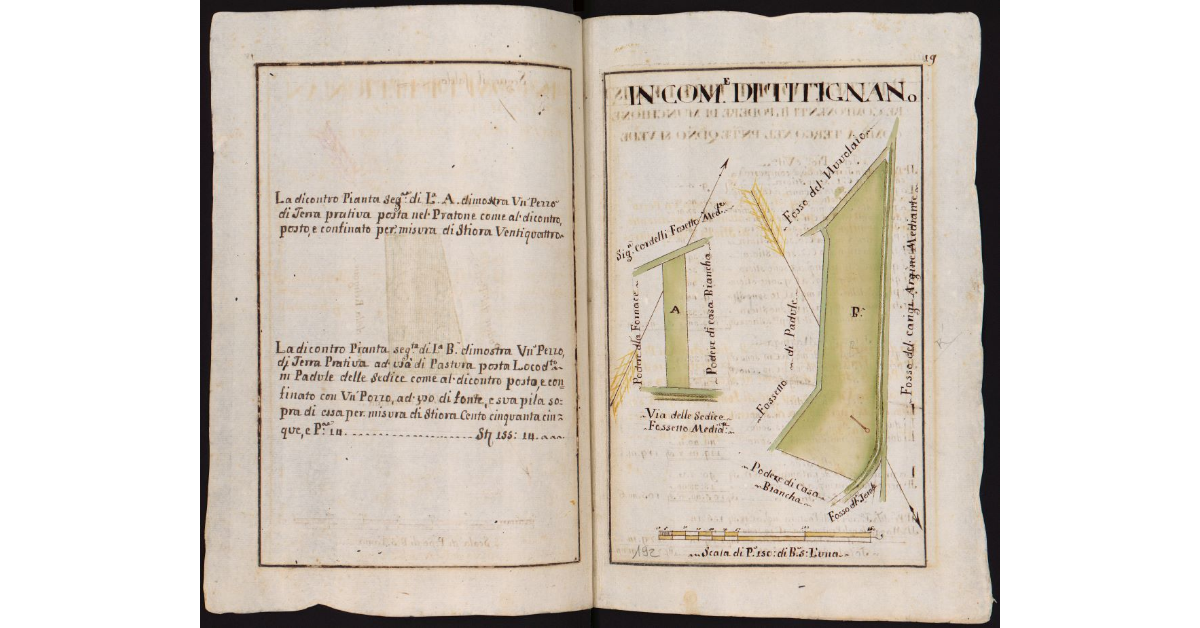 La dicontro Pianta seg.ta di L.a A. dimostra Vn Pezzo
di Terra prativa posta nel Pratone come al dicontro,
posto, e confinato per misura di Stiora Ventiquattro
La dicontro Pianta seg.ta di L.a B. dimostra Vn Pezzo,
di Terra Prativa ad uso di Pastura posta Loco d.to
in Padule delle Sedice come al dicontro posto, e con
finato con Vn Pozzo, ad uso di fonte, e sua pila so:
pra di essa per misura di Stiora Cento cinquanta cin=
que, e P. in. Sti 155: in.
19
IN COM.E DI TITIGNANo
Fosso del Nuvolaio
Sig.r Cordelli Fossetto Med.te
Podere dlla Fornace
A
Podere di casa Biancha
di Padule
Fossetto
B.
Fosso del Cangi Argine Mediante
Via delle Sedice
Fossetto Media.te
Podere di Casa
Biancha
192
Scala di P. 150: di B. s: l'una